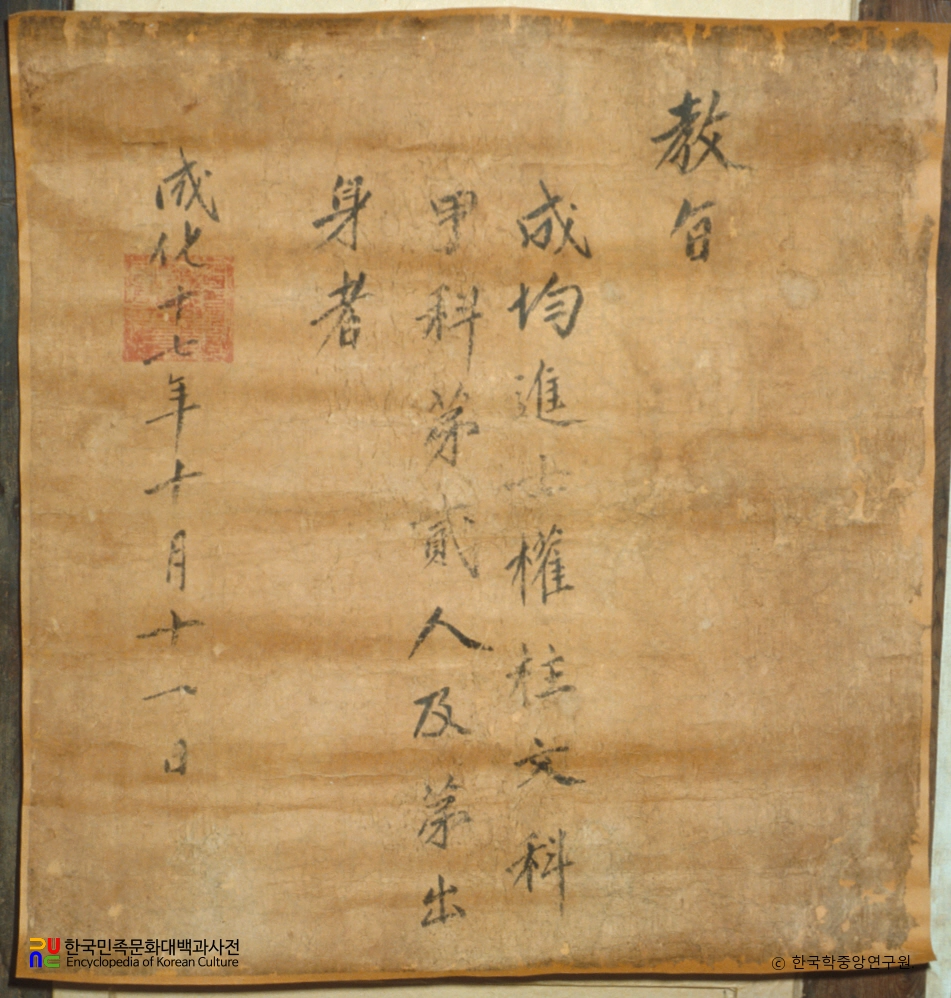 教旨
成均進士權柱文科
甲科第貳人及第出
身者
成化十七年十月十一日
한국민족문화대백과사전
Encyclopedia of Korean Culture
ⓒ 한국학중앙연구원